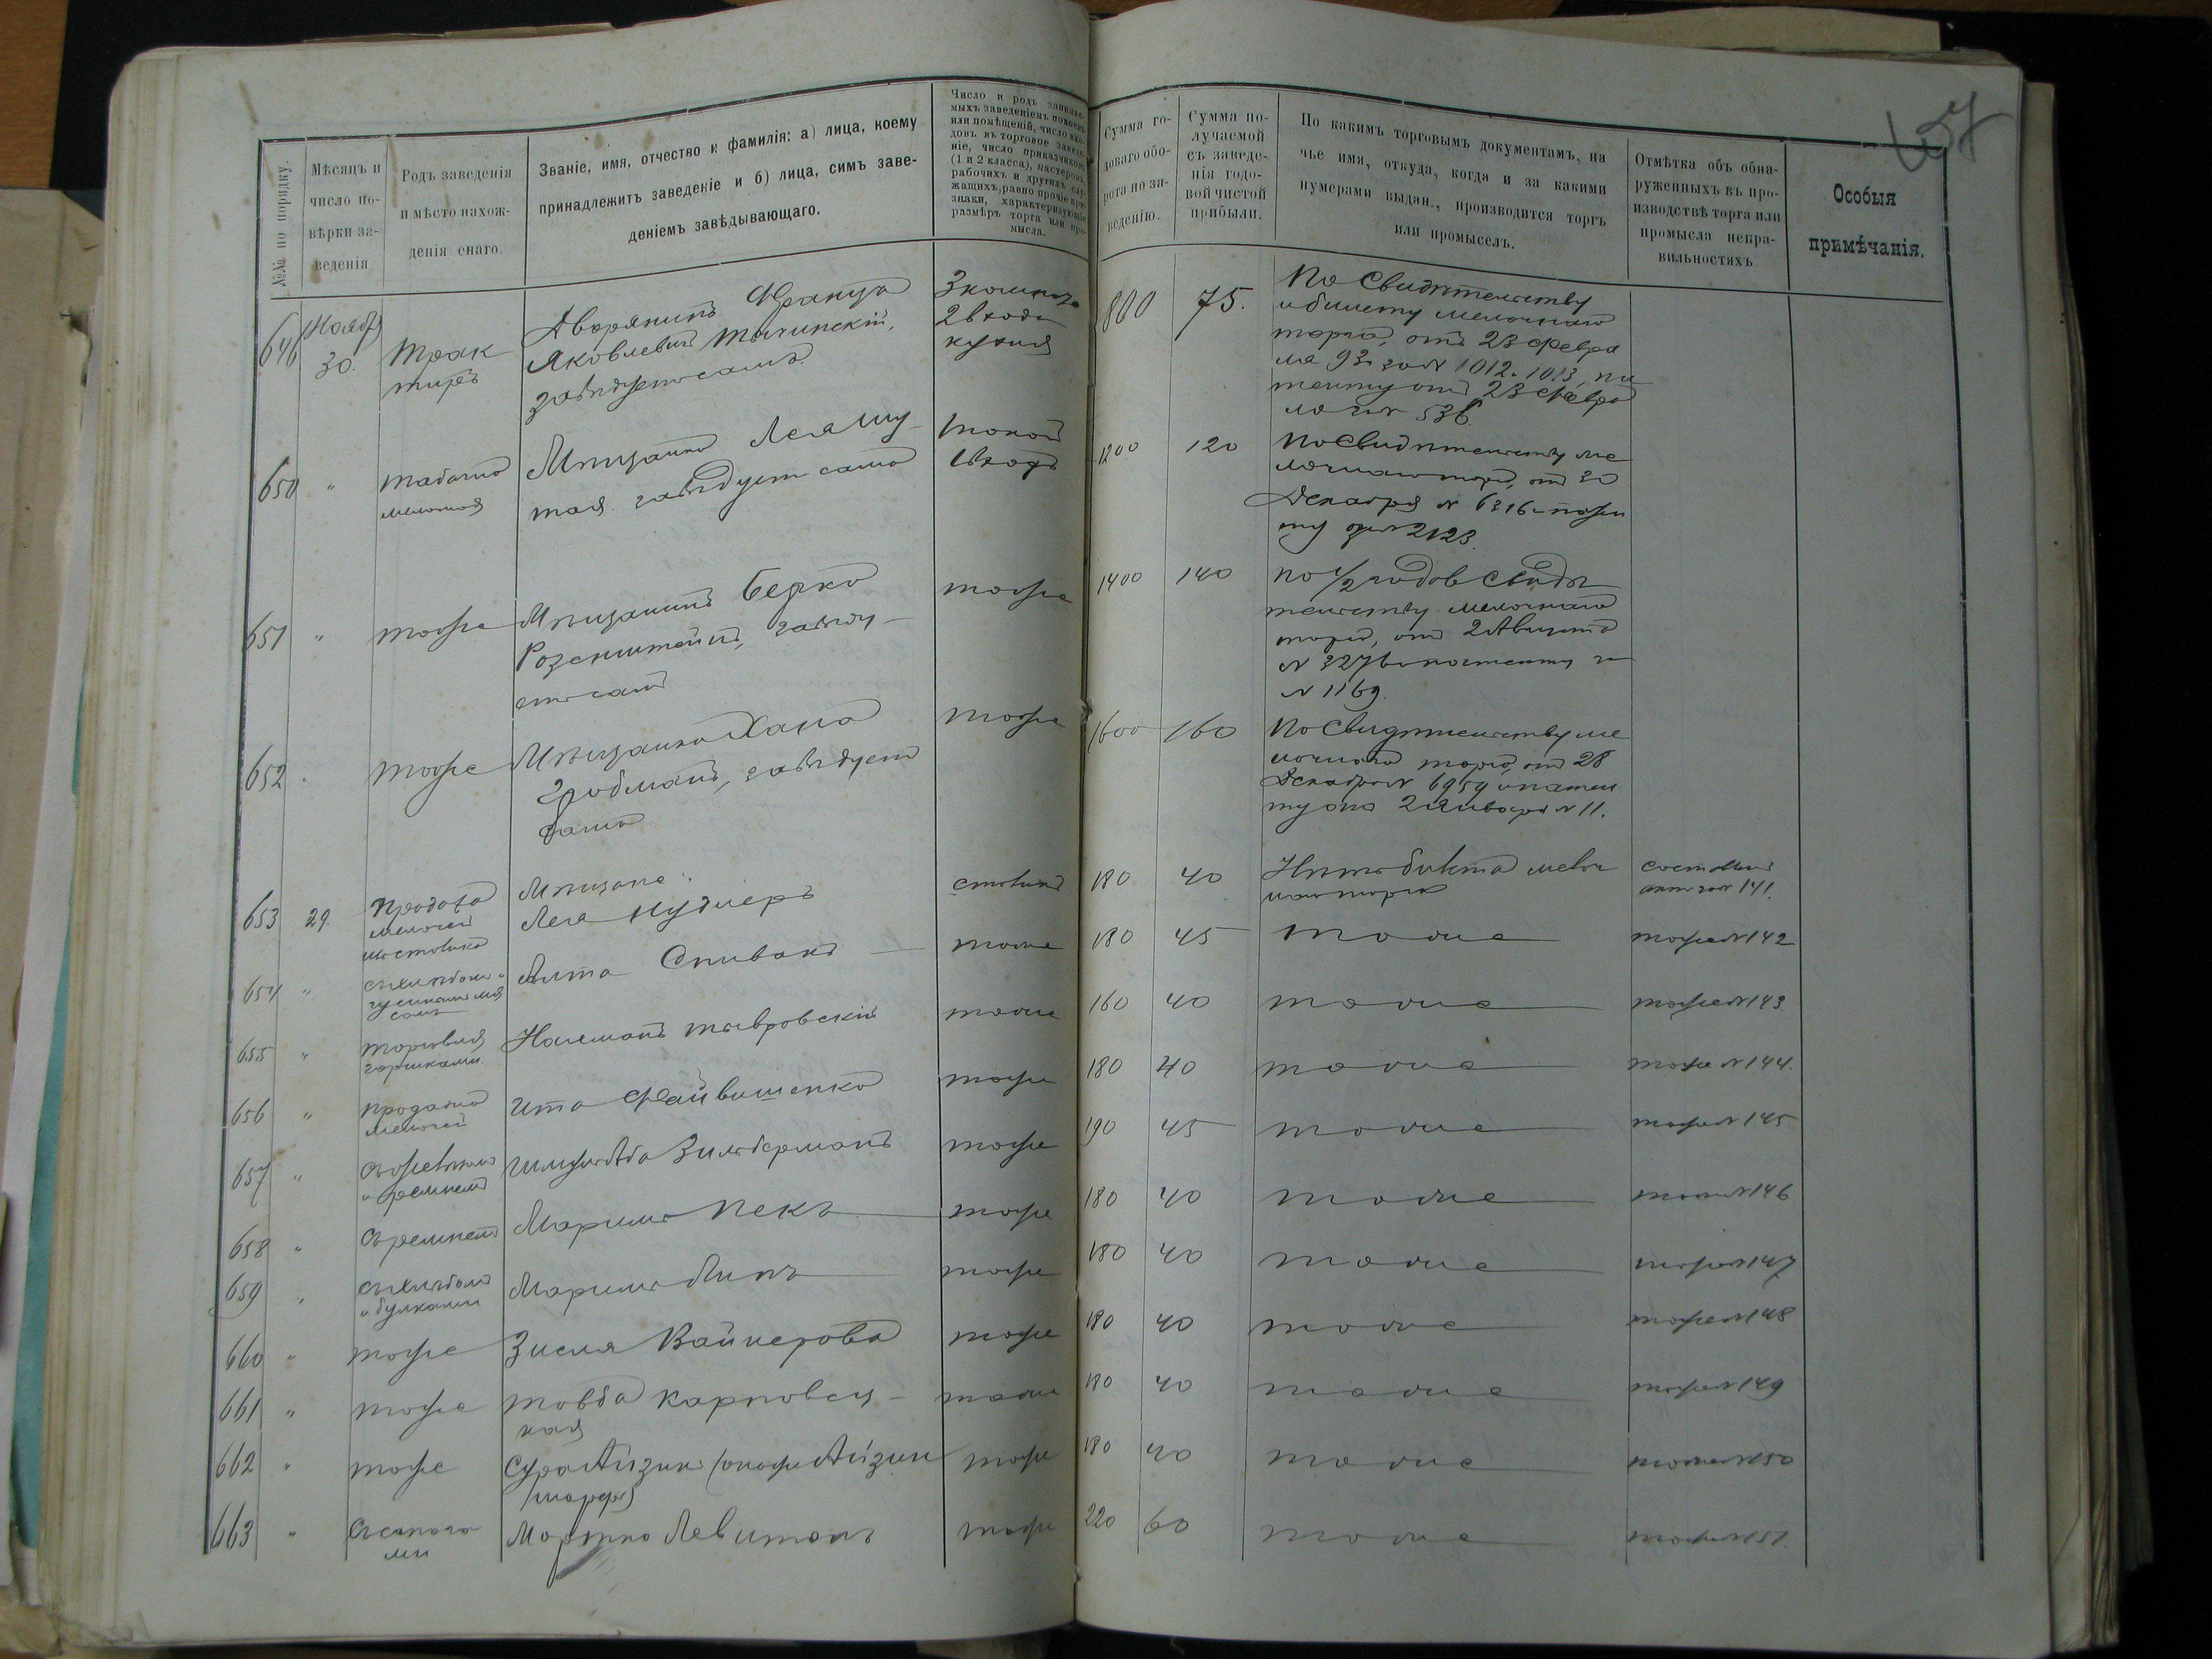 №№ по порядку.
Мѣсяцъ и
число по-
вѣрки за-
веденія
Родъ заведенія
и мѣсто нахож-
денія снаго.
Званіе, имя, отчество и фамилія: а) лица, коему
принадлежитъ заведеніе и б) лица, симъ заве-
деніемъ завѣдывающаго.
Число и родъ занимае-
мыхъ заведеніемъ покоевъ
или помѣщеній, число вхо-
довъ въ торговое заведе-
ніе, число приказчиковъ
(1 и 2 класса), мастеровъ,
рабочихъ и другихъ слу-
жащихъ, равно прочіе при-
знаки, характеризующіе
размѣръ торга или про-
мысла.
Сумма го-
доваго обо-
рота по за-
веденію.
Сумма по-
лучаемой
съ заведе-
нія годо-
вой чистой
прибыли.
По какимъ торговымъ документамъ, на
чье имя, откуда, когда и за какими
нумерами выдан., производится торгъ
или промыселъ.
Отмѣтка объ обна-
руженныхъ въ про-
изводствѣ торга или
промысла непра-
вильностяхъ
Особыя
примѣчанія.
157
646 Ноябр 30. Трак
тиръ
Дворянинъ Франца
Яковлевичъ Тычинскій,
завѣдуетъ самъ.
3 комнаты
2 входа
кухня
800 75.
По Свидѣтельству
и билету мелочнаго
торга, отъ 23 Февра
ля 93 г за № 1012. 1013, па
тенту отъ 23 Февра
ля за № 536.
650 " Табачна
мелочная
Мѣщанка Лея Шу-
тая. завѣдуетъ сама
1 покой
1 входъ
1200 120
По Свидѣтельству ме
лочнаго торга, отъ 30
Декабря № 6316 и патен
ту за № 2123.
651 " тоже
Мѣщанинъ Берко
Розенштейнъ, завѣду-
етъ самъ
тоже
1400 140
по 1/2 годов Свидѣ
тельству мелочнаго
торга, отъ 2 Августа
№ 3276 и патенту за
№ 1169.
652 " тоже
Мѣщанка Хана
Гробманъ, завѣдуетъ
сама
тоже
1600 160
По Свидѣтельству ме
лочнаго торга, отъ 28
Декабря № 6959 и патен
ту отъ 2 Января № 11.
653 29. Продажа
мелочей
изъ столика
Мѣщане:
Лея Нудлеръ
столикъ
180 40
Нѣтъ билета мелоч
наго торга
составленъ
актъ за № 141.
654 " съ хлѣбомъ и
гусинымъ мя
сомъ
Алта Спивакъ
тоже 180 45 тоже тоже № 142
655 " торговля
горшками.
Нахманъ Тывровскій
тоже 160 40 тоже тоже № 143
656 " продажа
мелочей
Ита Файвишенко
тоже 180 40 тоже тоже № 144.
657 "
Зильберманъ
тоже 190 45 тоже тоже № 145
658 "
Маримъ Пекъ
тоже 180 40 тоже тоже № 146
659 " съ хлѣбомъ
и булками
Маримъ Липъ
тоже 180 40 тоже тоже № 147
660 " тоже Зисля Вайнерова тоже 180 40 тоже тоже № 148
661 " тоже Товба Карповец-
кая
тоже 180 40 тоже тоже № 149
662 " тоже Сура Айзинъ (она же Айзин
тоже 180 40 тоже тоже № 150
663 " Съ сапога
ми
Мортко Левитанъ тоже 220 60 тоже тоже № 151.